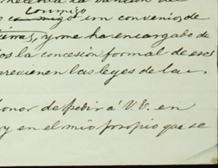 conmigo
un convenio, de
y me ha encargado de
los la concesión formal de esos
previenen las leyes de la
honor de pedir á V.V. en
y en el mio propio que se